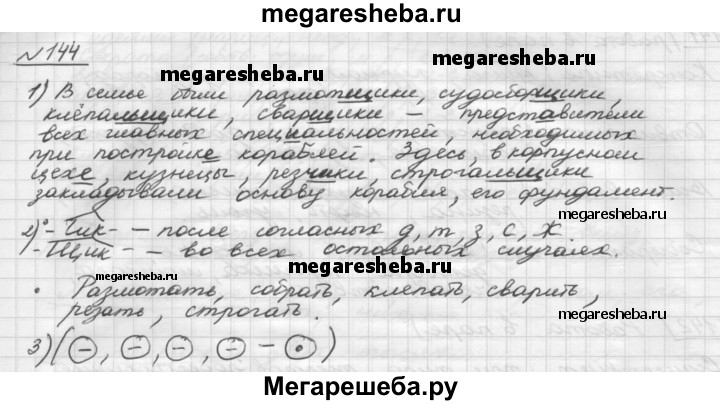 megaresheba.ru
№144
megaresheba.ru megaresheba.ru
1) В семье были размотщики, судосборщики,
клепальщики, сварщики – представители
всех главных специальностей, необходимых
при постройке кораблей. Здесь, в корпусном
цехе, кузнецы, резчики, строгальщики
закладывали основу корабля, его фундамент.
megaresheba.ru
2) -Чик- – после согласных д, т, з, с, ж
-Щик- – во всех остальных случаях.
megaresheba.ru megaresheba.ru
• Размотать, собрать, клепать, сварить,
резать, строгать.
megaresheba.ru
3) (–, –, –, – – •)
Мегарешеба.ру